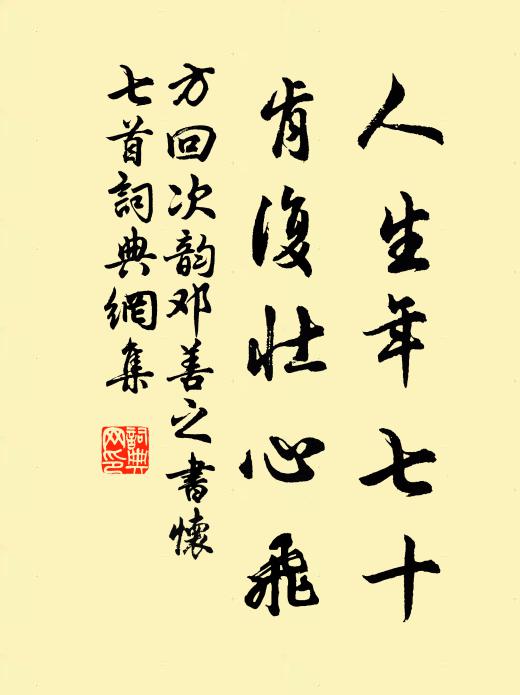 人生年七十
肯復壮心飛
方回次韵邓善之書懷
七首詞典網集
詞典
网印